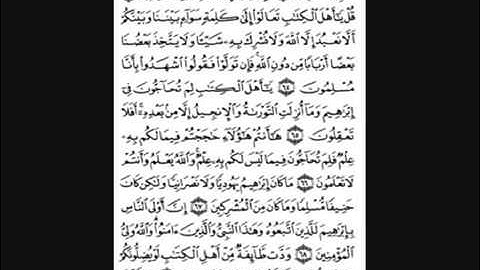 قُلْ يَٰٓأَهْلَ ٱلْكِتَٰبِ تَعَالَوْا۟ إِلَىٰ كَلِمَةٍ سَوَآءٍۭ بَيْنَنَا وَبَيْنَكُمْ
أَلَّا نَعْبُدَ إِلَّا ٱللَّهَ وَلَا نُشْرِكَ بِهِۦ شَيْـًٔا وَلَا يَتَّخِذَ بَعْضُنَا
بَعْضًا أَرْبَابًا مِّن دُونِ ٱللَّهِ ۚ فَإِن تَوَلَّوْا۟ فَقُولُوا۟ ٱشْهَدُوا۟ بِأَنَّا
مُسْلِمُونَ ۝٦٤ يَٰٓأَهْلَ ٱلْكِتَٰبِ لِمَ تُحَآجُّونَ فِىٓ
إِبْرَٰهِيمَ وَمَآ أُنزِلَتِ ٱلتَّوْرَىٰةُ وَٱلْإِنجِيلُ إِلَّا مِنۢ بَعْدِهِۦٓ ۚ أَفَلَا
تَعْقِلُونَ ۝٦٥ هَٰٓأَنتُمْ هَٰٓؤُلَآءِ حَٰجَجْتُمْ فِيمَا لَكُم بِهِۦ
عِلْمٌ فَلِمَ تُحَآجُّونَ فِيمَا لَيْسَ لَكُم بِهِۦ عِلْمٌ ۚ وَٱللَّهُ يَعْلَمُ وَأَنتُمْ
لَا تَعْلَمُونَ ۝٦٦ مَا كَانَ إِبْرَٰهِيمُ يَهُودِيًّا وَلَا نَصْرَانِيًّا وَلَٰكِن كَانَ
حَنِيفًا مُّسْلِمًا وَمَا كَانَ مِنَ ٱلْمُشْرِكِينَ ۝٦٧ إِنَّ أَوْلَى ٱلنَّاسِ
بِإِبْرَٰهِيمَ لَلَّذِينَ ٱتَّبَعُوهُ وَهَٰذَا ٱلنَّبِىُّ وَٱلَّذِينَ ءَامَنُوا۟ ۗ وَٱللَّهُ وَلِىُّ
ٱلْمُؤْمِنِينَ ۝٦٨ وَدَّت طَّآئِفَةٌ مِّنْ أَهْلِ ٱلْكِتَٰبِ لَوْ يُضِلُّونَكُمْ